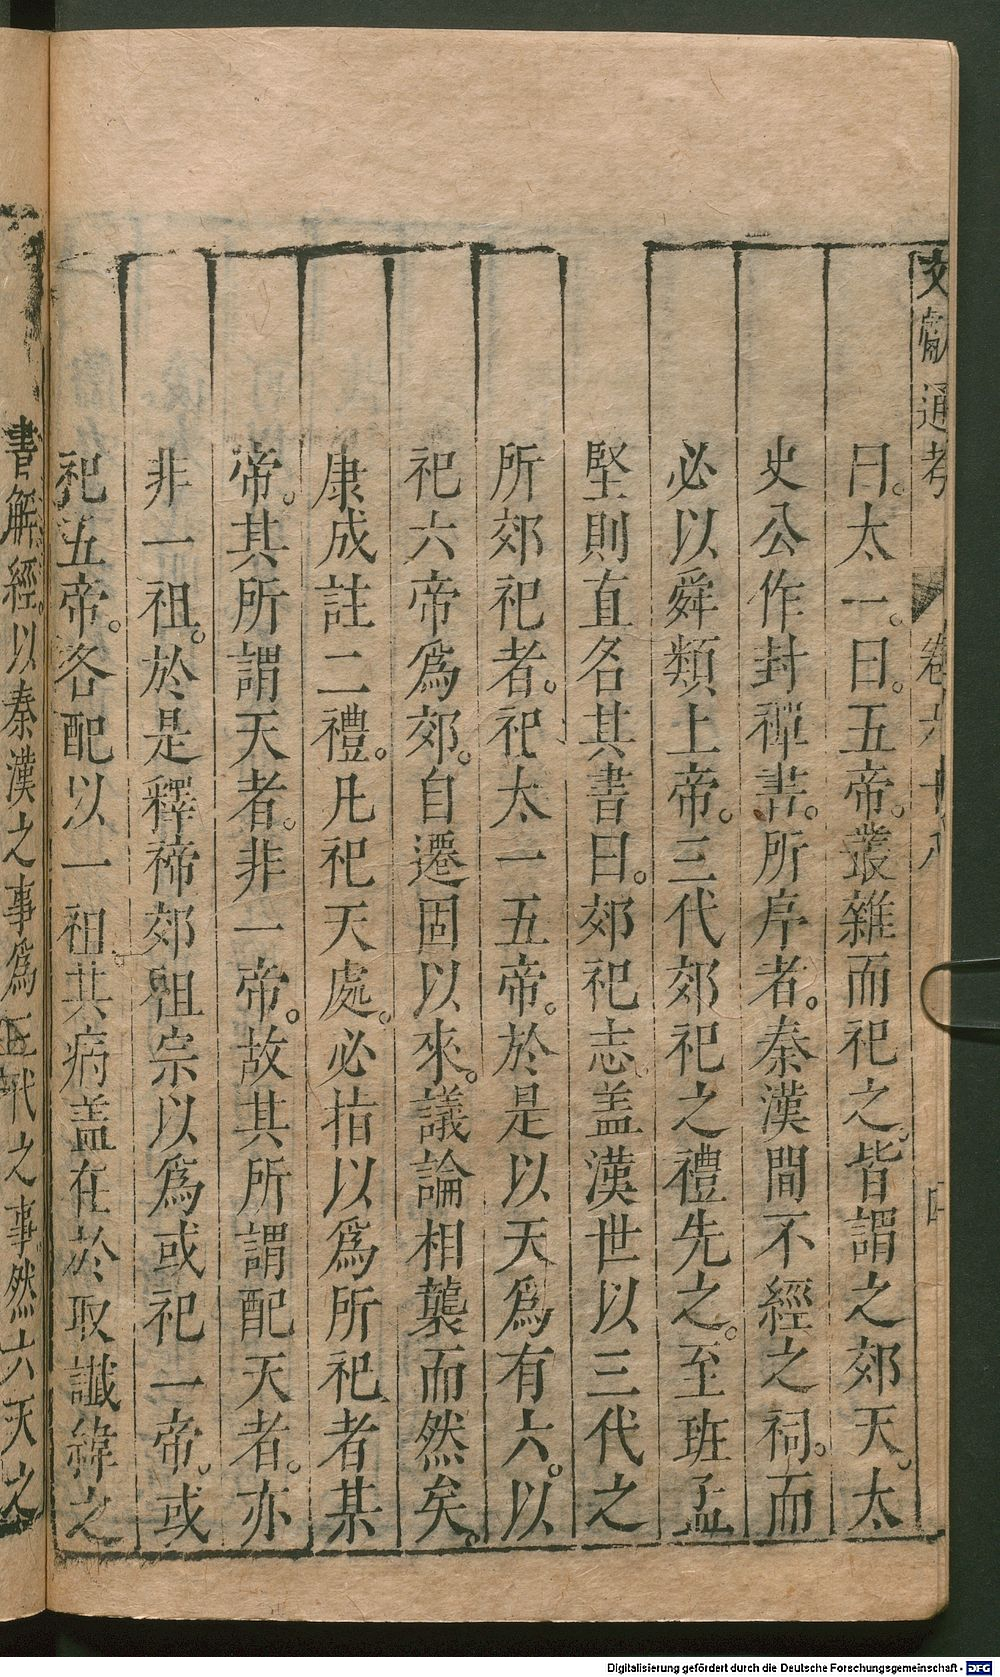 文獻通考 卷六十八
曰。太一。曰。五帝。叢雜而祀之。皆謂之郊天。太
史公作封禪書。所序者。秦漢間不經之祠。而
必以舜類上帝。三代郊祀之禮先之。至班孟
堅則直名其書曰。郊祀志。盖漢世以三代之
所郊祀者。祀太一五帝。於是以天爲有六。以
祀六帝爲郊。自遷固以來。議論相襲而然矣。
康成註二禮。凡祀天處。必指以爲所祀者某
帝。其所謂天者。非一帝。故其所謂配天者。亦
非一祖。於是釋禘郊祖宗以爲或祀一帝。或
祀五帝。各配以一祖。其病盖在於取讖緯之
書解經。以秦漢之事爲三代之事。然六天之
Digitalisierung gefördert durch die Deutsche Forschungsgemeinschaft - DFG